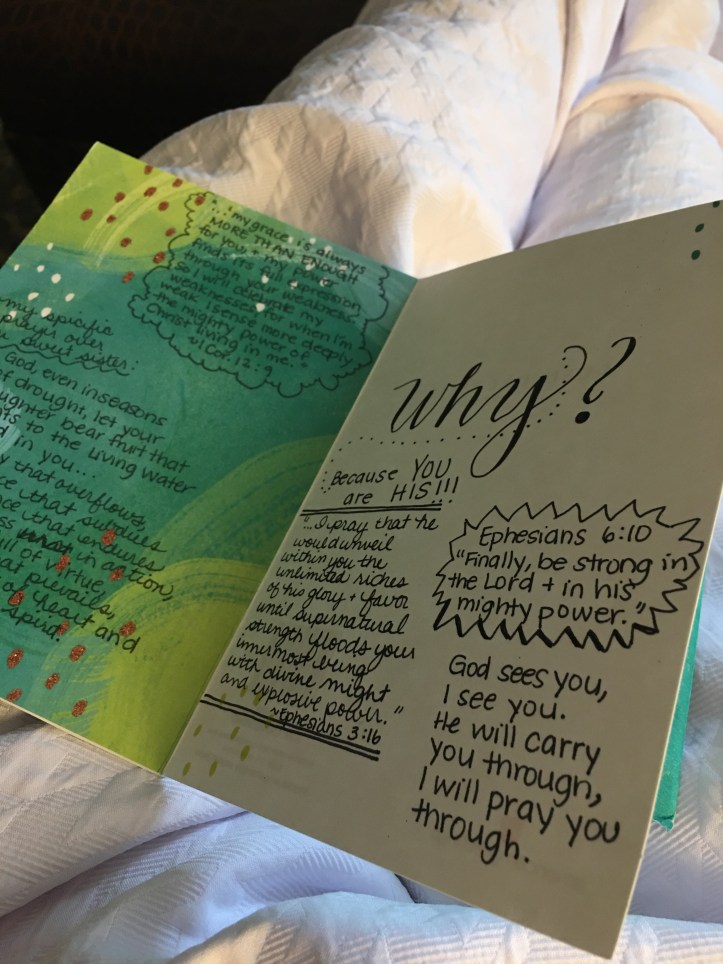 "...my grace is always
MORE THAN ENOUGH
for you + my power
finds its full expression
through your weakness.
So I will celebrate my
weaknesses for when I'm
weak I sense more deeply
the mighty power of
Christ living in me."
my spicific
prayer over
sweet sister:
God, even inseasons
of drought, let your
daughter bear fruit that
to the living water
in you...
that overflows,
that subdues
that endures
in action,
of virtue
prevails,
of heart and
spirit.
why?
Because YOU
are HIS!!!
"...I pray that he
would unveil
within you the
unlimited riches
of his glory + favor
until supernatural
strength floods your
innermost being
with divine might
and explosive power."
~Ephesians 3:16
Ephesians 6:10
"Finally, be strong in
the Lord + in his
mighty power."
God sees you,
I see you.
He will carry
you through,
I will pray you
through.